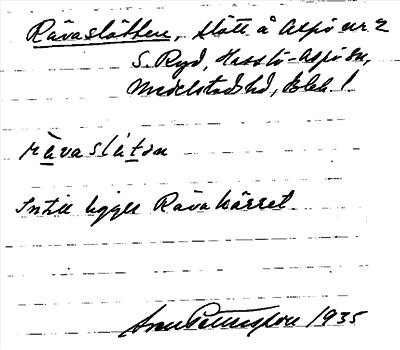 Rävaslåtten, slått å Aspö nr 2
S. Ryd, Hasslö-Aspö sn,
Medelstad hd, Blek. l.
rävaslåtən
Intill ligger Rävakärret.
Sven Pettersson 1935